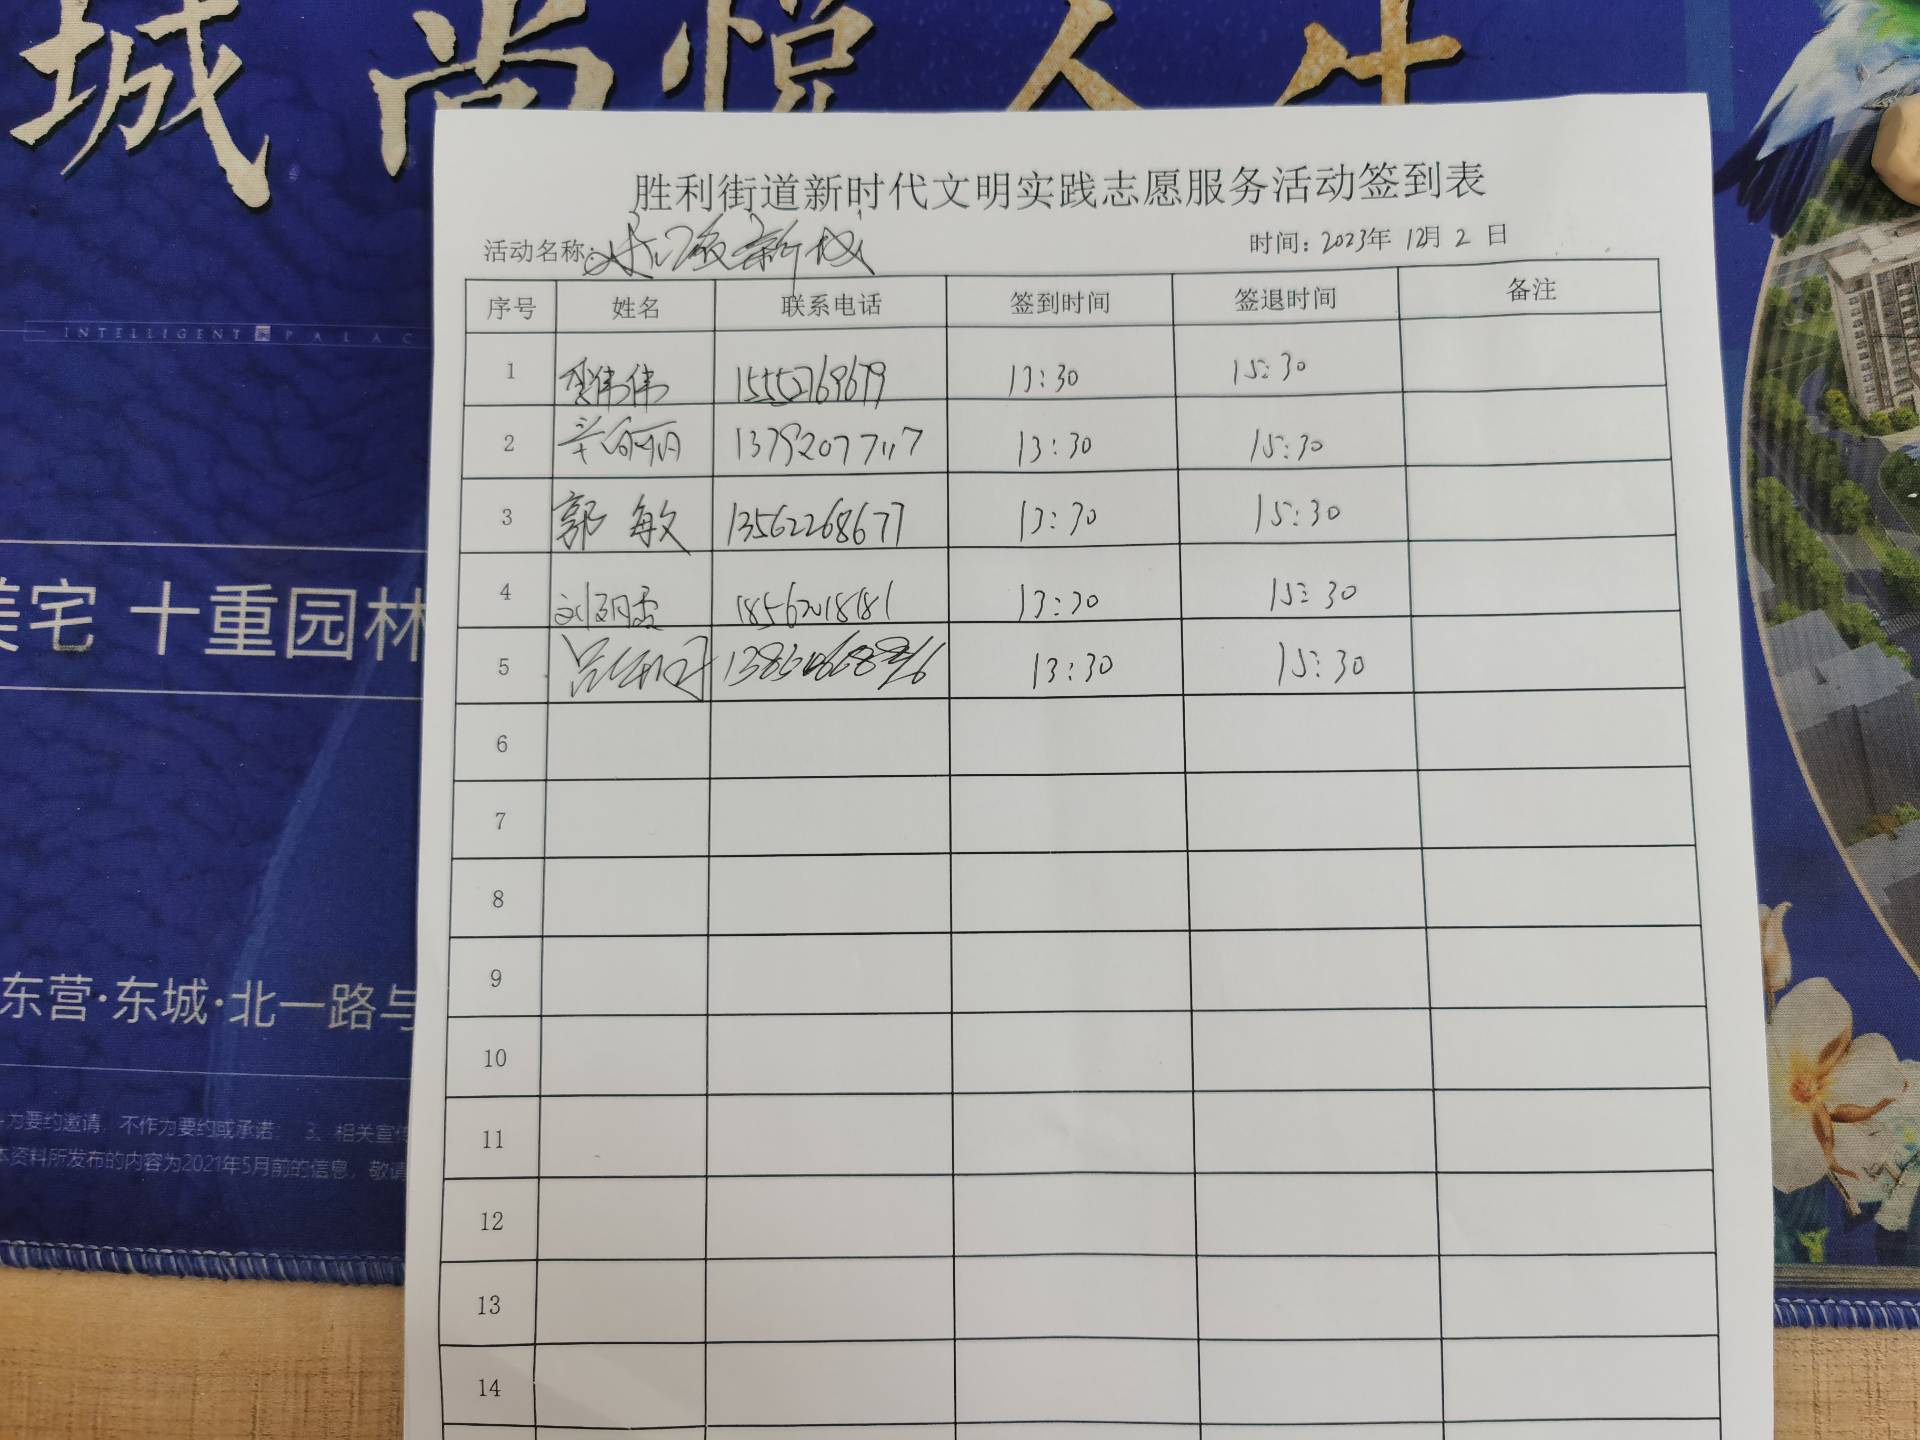 城尚悦人生
INTELLIGENT PALAC
美宅 十重园林
东营·东城·北一路与
为要约邀请，不作为要约或承诺； 3、相关宣传
本资料所发布的内容为2021年5月前的信息，敬请
胜利街道新时代文明实践志愿服务活动签到表
活动名称: 时间：2023年 12月 2 日
序号 姓名 联系电话 签到时间 签退时间 备注
1 伟伟 15552769679 13:30 15:30
2 13:30 15:30
3 郭敏 13562268677 13:30 15:30
4 刘 13:30 15:30
5 13:30 15:30
6
7
8
9
10
11
12
13
14